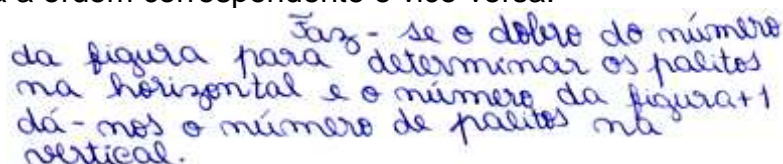 a a ordem correspondente e vice-versa.
Faz-se o dobro do número
da figura para determinar os palitos
na horizontal e o número da figura+1
dá-nos o número de palitos na
vertical.